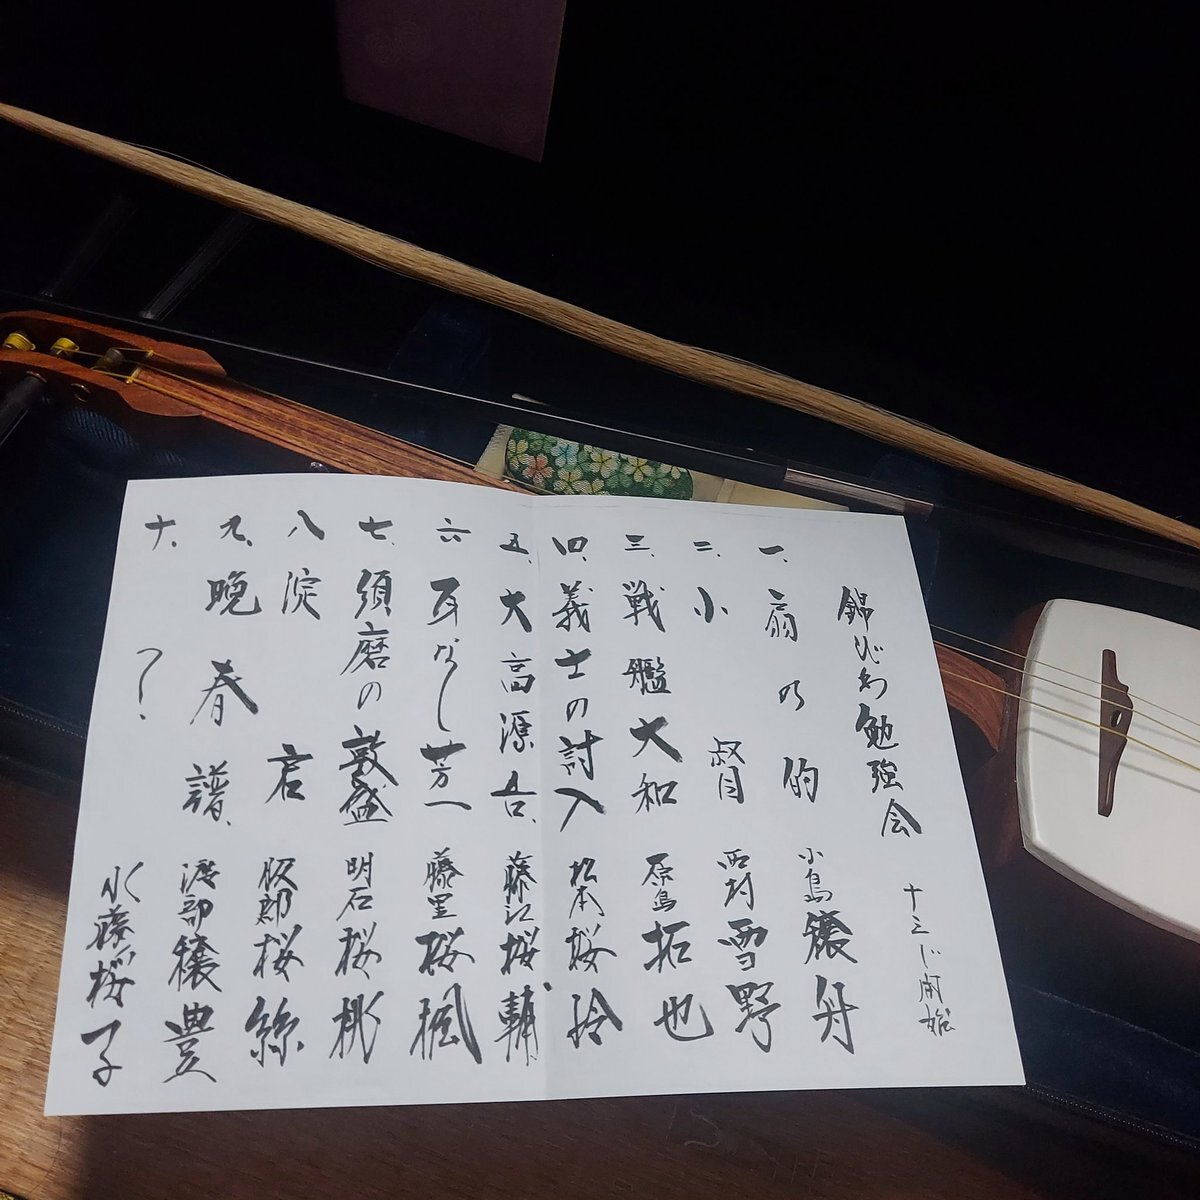 錦びわ勉強会 十三じ開始
一、扇の的 小島穣舟
二、小督 西村雪野
三、戦艦大和 原島拓也
四、義士の討入 松本桜玲
五、大高源吾 藤江桜輔
六 耳なし芳一 藤里桜楓
七、須磨の敦盛 明石桜彬
八 淀君 桜絲
九、晩春譜、 渡部穣豊
十、？ 水藤桜子